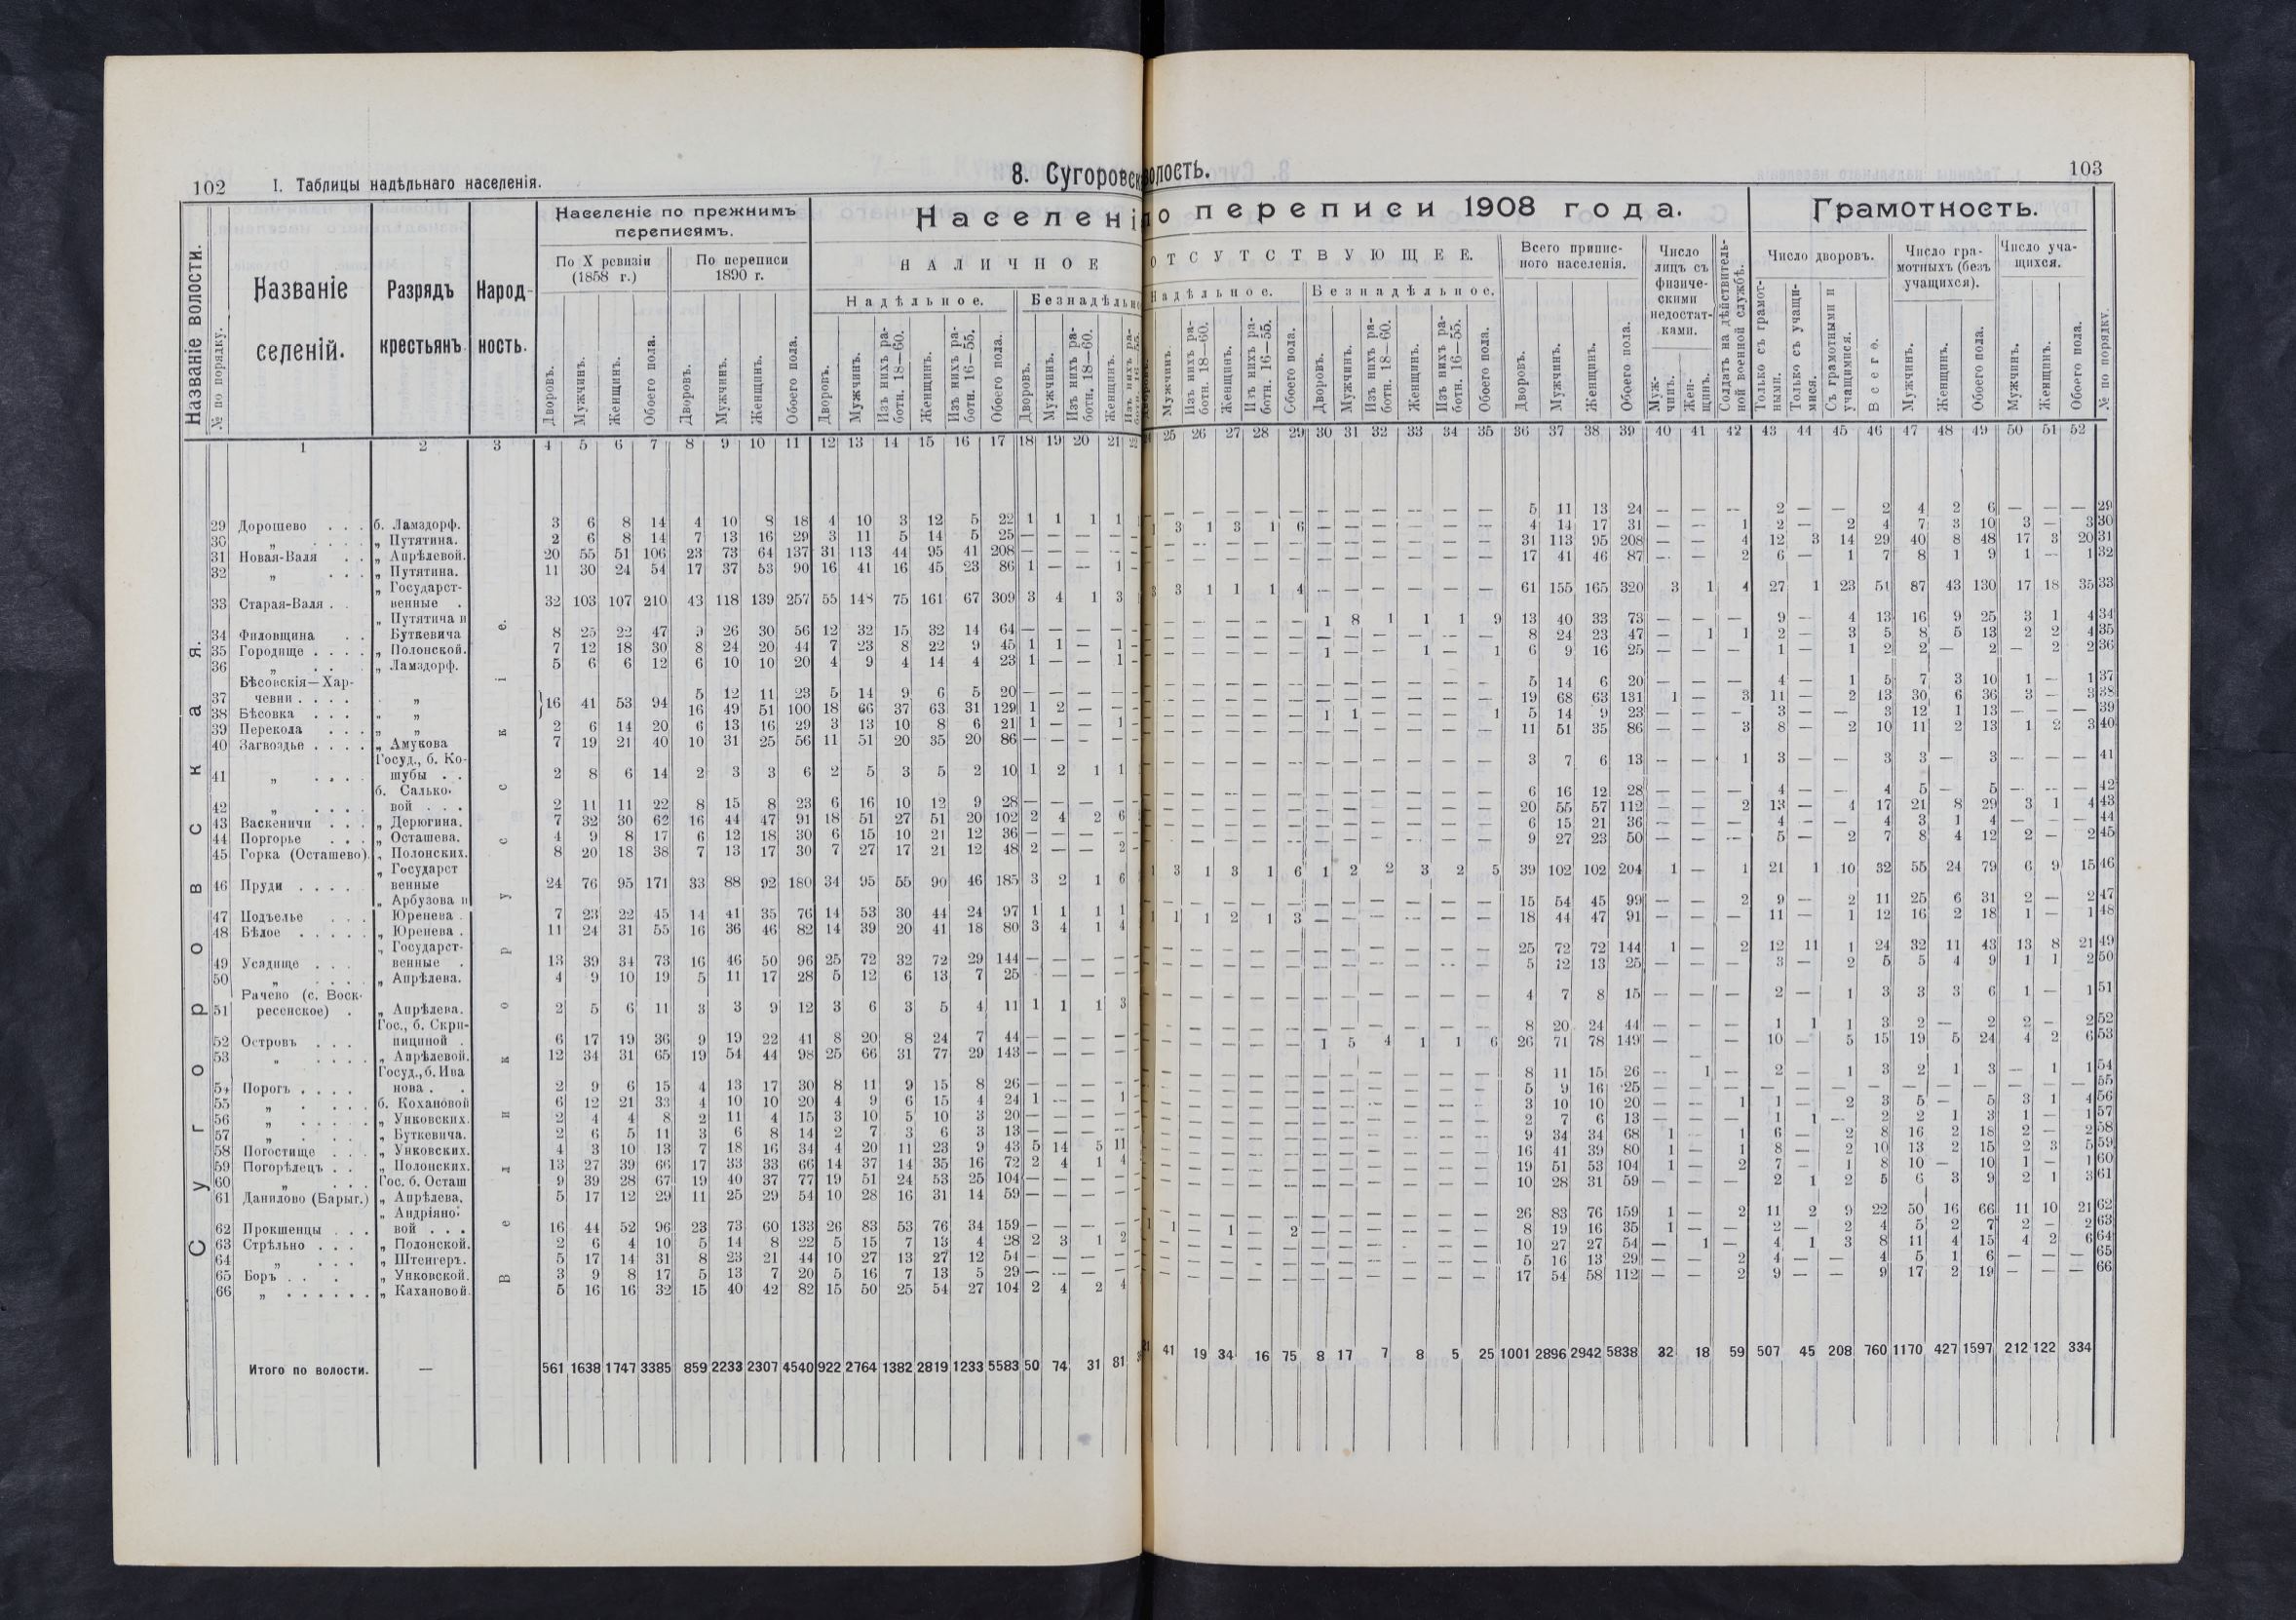 102
I. Таблицы надѣльнаго населенія.
8. Сугоровск
Названіе волости.
№ по порядку.
Названіе селеній.
Разрядъ крестьянъ
Народ-ность.
Населеніе по прежнимъ переписямъ.
По X ревизіи (1858 г.)
По переписи 1890 г.
Населені
НАЛИЧНОЕ
Надѣльное.
Безнадѣльно
Дворовъ. Мужчинъ. Женщинъ. Обоего пола. Дворовъ. Мужчинъ. Женщинъ. Обоего пола. Дворовъ. Мужчинъ. Изъ нихъ работн. 18—60. Женщинъ. Изъ нихъ работн. 16—55. Обоего пола. Дворовъ. Мужчинъ. Изъ нихъ работн. 18—60. Женщинъ.
1 2 3 4 5 6 7 8 9 10 11 12 13 14 15 16 17 18 19 20 21
Сугоровская.
Великорусскіе.
29 Дорошево . . . б. Ламздорф. 3 6 8 14 4 10 8 18 4 10 3 12 5 22 1 1 1 1
30 „ . . . . „ Путятина. 2 6 8 14 7 13 16 29 3 11 5 14 5 25 — — — —
31 Новая-Валя . . „ Апрѣлевой. 20 55 51 106 23 73 64 137 31 113 44 95 41 208 — — — —
32 „ . . . „ Путятина. 11 30 24 54 17 37 53 90 16 41 16 45 23 86 1 — — 1
„ Государст-
33 Старая-Валя . . венные . 32 103 107 210 43 118 139 257 55 148 75 161 67 309 3 4 1 3
„ Путятича и
34 Филовщина . . Буткевича 8 25 22 47 9 26 30 56 12 32 15 32 14 64 — — — —
35 Городище . . . . „ Полонской. 7 12 18 30 8 24 20 44 7 23 8 22 9 45 1 1 — 1
36 „ . . . „ Ламздорф. 5 6 6 12 6 10 10 20 4 9 4 14 4 23 1 — — 1
Бѣсовскія—Хар-
37 чевни . . . . „ 5 12 11 23 5 14 9 6 5 20 — — — —
} 16 41 53 94
38 Бѣсовка . . . „ „ 16 49 51 100 18 66 37 63 31 129 1 2 — —
39 Перекола . . . „ „ 2 6 14 20 6 13 16 29 3 13 10 8 6 21 1 — — 1
40 Загвоздье . . . . „ Амукова 7 19 21 40 10 31 25 56 11 51 20 35 20 86 — — — —
Госуд., б. Ко-
41 „ . . . . шубы . . 2 8 6 14 2 3 3 6 2 5 3 5 2 10 1 2 1 1
б. Салько-
42 „ . . . . вой . . . 2 11 11 22 8 15 8 23 6 16 10 12 9 28 — — — —
43 Васкеничи . . . „ Дерюгина. 7 32 30 62 16 44 47 91 18 51 27 51 20 102 2 4 2 6
44 Поргорье . . . „ Осташева. 4 9 8 17 6 12 18 30 6 15 10 21 12 36 — — — —
45 Горка (Осташево). „ Полонских. 8 20 18 38 7 13 17 30 7 27 17 21 12 48 2 — — 2
„ Государст
46 Пруди . . . . венные 24 76 95 171 33 88 92 180 34 95 55 90 46 185 3 2 1 6
„ Арбузова и
47 Подъелье . . . Юренева . 7 23 22 45 14 41 35 76 14 53 30 44 24 97 1 1 1 1
48 Бѣлое . . . . . „ Юренева . 11 24 31 55 16 36 46 82 14 39 20 41 18 80 3 4 1 4
„ Государст-
49 Усадище . . . венные . 13 39 34 73 16 46 50 96 25 72 32 72 29 144 — — — —
50 „ . . . . „ Апрѣлева. 4 9 10 19 5 11 17 28 5 12 6 13 7 25 — — —
Рачево (с. Воск-
51 ресенское) . „ Апрѣлева. 2 5 6 11 3 3 9 12 3 6 3 5 4 11 1 1 1 3
Гос., б. Скри-
52 Островъ . . . пициной . 6 17 19 36 9 19 22 41 8 20 8 24 7 44 — — — —
53 „ . . . . „ Апрѣлевой. 12 34 31 65 19 54 44 98 25 66 31 77 29 143 — — — —
Госуд., б. Ива
54 Порогъ . . . . нова . . 2 9 6 15 4 13 17 30 8 11 9 15 8 26 — — — —
55 „ . . . . б. Кохановой 6 12 21 33 4 10 10 20 4 9 6 15 4 24 1 — — 1
56 „ . . . . . „ Унковских. 2 4 4 8 2 11 4 15 3 10 5 10 3 20 — — — —
57 „ . . . „ Буткевича. 2 6 5 11 3 6 8 14 2 7 3 6 3 13 — — — —
58 Погостище . . . „ Унковских. 4 3 10 13 7 18 16 34 4 20 11 23 9 43 5 14 5 11
59 Погорѣлецъ . . „ Полонских. 13 27 39 66 17 33 33 66 14 37 14 35 16 72 2 4 1 4
60 „ . . . Гос. б. Осташ 9 39 28 67 19 40 37 77 19 51 24 53 25 104 — — — —
61 Данилово (Барыг.) „ Апрѣлева. 5 17 12 29 11 25 29 54 10 28 16 31 14 59 — — — —
„ Андріяно-
62 Прокшенцы . . . вой . . . 16 44 52 96 23 73 60 133 26 83 53 76 34 159 — — — —
63 Стрѣльно . . . „ Полонской. 2 6 4 10 5 14 8 22 5 15 7 13 4 28 2 3 1 2
64 „ . . . „ Штенгеръ. 5 17 14 31 8 23 21 44 10 27 13 27 12 54 — — — —
65 Боръ . . . „ Унковской. 3 9 8 17 5 13 7 20 5 16 7 13 5 29 — — — —
66 „ . . . . . . „ Кахановой. 5 16 16 32 15 40 42 82 15 50 25 54 27 104 2 4 2 4
Итого по волости. — 561 1638 1747 3385 859 2233 2307 4540 922 2764 1382 2819 1233 5583 50 74 31 81
олость.
103
по переписи 1908 года.
Грамотность.
ОТСУТСТВУЮЩЕЕ.
Надѣльное.
Безнадѣльное.
Всего припис-ного населенія.
Число лицъ съ физиче-скими недостат-ками.
Солдатъ на дѣйствитель-ной военной службѣ.
Число дворовъ.
Число гра-мотныхъ (безъ учащихся).
Число уча-щихся.
№ по порядку.
Мужчинъ. Изъ нихъ работн. 18—60. Женщинъ. Изъ нихъ работн. 16—55. Обоего пола. Дворовъ. Мужчинъ. Изъ нихъ работн. 18—60. Женщинъ. Изъ нихъ работн. 16—55. Обоего пола. Дворовъ. Мужчинъ. Женщинъ. Обоего пола. Муж-чинъ. Жен-щинъ. Только съ грамот-ными. Только съ учащи-мися. Съ грамотными и учащимися. Всего. Мужчинъ. Женщинъ. Обоего пола. Мужчинъ. Женщинъ. Обоего пола.
25 26 27 28 29 30 31 32 33 34 35 36 37 38 39 40 41 42 43 44 45 46 47 48 49 50 51 52
— — — — — — — — — — — 5 11 13 24 — — — 2 — — 2 4 2 6 — — — 29
1 3 1 3 1 6 — — — — — — 4 14 17 31 — — 1 2 — 2 4 7 3 10 3 — 3 30
— — — — — — — — — — — 31 113 95 208 — — 4 12 3 14 29 40 8 48 17 3 20 31
— — — — — — — — — — — 17 41 46 87 — — 2 6 — 1 7 8 1 9 1 — 1 32
3 3 1 1 1 4 — — — — — — 61 155 165 320 3 1 4 27 1 23 51 87 43 130 17 18 35 33
— — — — — 1 8 1 1 1 9 13 40 33 73 — — — 9 — 4 13 16 9 25 3 1 4 34
— — — — — — — — — — — 8 24 23 47 — 1 1 2 — 3 5 8 5 13 2 2 4 35
— — — — — 1 — — 1 — 1 6 9 16 25 — — — 1 — 1 2 2 — 2 — 2 2 36
— — — — — — — — — — — 5 14 6 20 — — — 4 — 1 5 7 3 10 1 — 1 37
— — — — — — — — — — — 19 68 63 131 1 — 3 11 — 2 13 30 6 36 3 — 3 38
— — — — — 1 1 — — — 1 5 14 9 23 — — — 3 — — 3 12 1 13 — — — 39
— — — — — — — — — — — 11 51 35 86 — — 3 8 — 2 10 11 2 13 1 2 3 40
— — — — — — — — — — — 3 7 6 13 — — 1 3 — — 3 3 — 3 — — — 41
— — — — — — — — — — — 6 16 12 28 — — — 4 — — 4 5 — 5 — — — 42
— — — — — — — — — — — 20 55 57 112 — — 2 13 — 4 17 21 8 29 3 1 4 43
— — — — — — — — — — — 6 15 21 36 — — — 4 — — 4 3 1 4 — — — 44
— — — — — — — — — — — 9 27 23 50 — — — 5 — 2 7 8 4 12 2 — 2 45
1 3 1 3 1 6 1 2 2 3 2 5 39 102 102 204 1 — 1 21 1 10 32 55 24 79 6 9 15 46
— — — — — — — — — — — 15 54 45 99 — — 2 9 — 2 11 25 6 31 2 — 2 47
1 1 1 2 1 3 — — — — — — 18 44 47 91 — — — 11 — 1 12 16 2 18 1 — 1 48
— — — — — — — — — — — 25 72 72 144 1 — 2 12 11 1 24 32 11 43 13 8 21 49
— — — — — — — — — — — 5 12 13 25 — — — 3 — 2 5 5 4 9 1 1 2 50
— — — — — — — — — — — 4 7 8 15 — — — 2 — 1 3 3 3 6 1 — 1 51
— — — — — — — — — — — 8 20 24 44 — — — 1 1 1 3 2 — 2 2 — 2 52
— — — — — 1 5 4 1 1 6 26 71 78 149 — — 10 — 5 15 19 5 24 4 2 6 53
— — — — — — — — — — — 8 11 15 26 — 1 — 2 — 1 3 2 1 3 — 1 1 54
— — — — — — — — — — — 5 9 16 25 — — — — — — — — — — — — — 55
— — — — — — — — — — — 3 10 10 20 — — 1 1 — 2 3 5 — 5 3 1 4 56
— — — — — — — — — — — 2 7 6 13 — — — 1 1 — 2 2 1 3 1 — 1 57
— — — — — — — — — — — 9 34 34 68 1 — 1 6 — 2 8 16 2 18 2 — 2 58
— — — — — — — — — — — 16 41 39 80 1 — 1 8 — 2 10 13 2 15 2 3 5 59
— — — — — — — — — — — 19 51 53 104 1 — 2 7 — 1 8 10 — 10 1 — 1 60
— — — — — — — — — — — 10 28 31 59 — — — 2 1 2 5 6 3 9 2 1 3 61
— — — — — — — — — — — 26 83 76 159 1 — 2 11 2 9 22 50 16 66 11 10 21 62
1 1 — 1 — 2 — — — — — — 8 19 16 35 1 — — 2 — 2 4 5 2 7 2 — 2 63
— — — — — — — — — — — 10 27 27 54 — 1 — 4 1 3 8 11 4 15 4 2 6 64
— — — — — — — — — — — 5 16 13 29 — — 2 4 — — 4 5 1 6 — — — 65
— — — — — — — — — — — 17 54 58 112 — — 2 9 — — 9 17 2 19 — — — 66
21 41 19 34 16 75 8 17 7 8 5 25 1001 2896 2942 5838 32 18 59 507 45 208 760 1170 427 1597 212 122 334